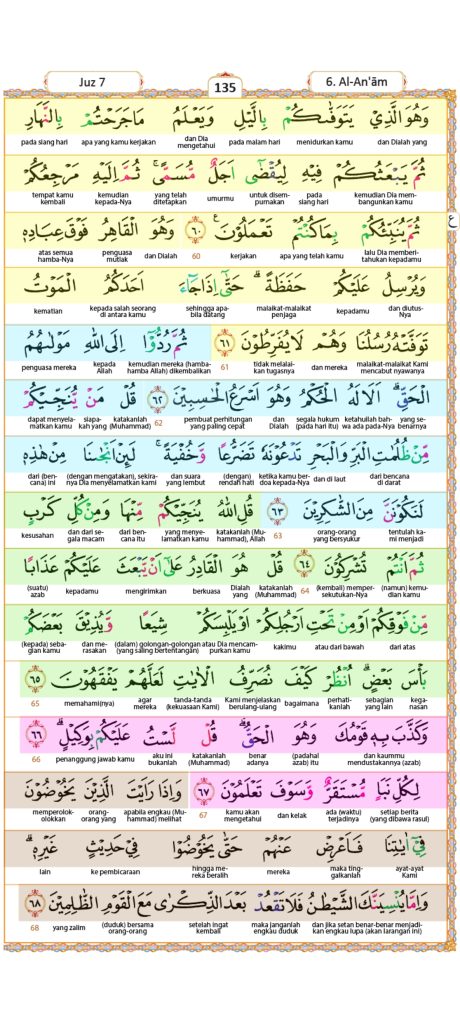 Juz 7
135
6. Al-An'ām
وَهُوَ الَّذِيْ يَتَوَفّٰىكُمْ بِالَّيْلِ وَيَعْلَمُ مَا جَرَحْتُمْ بِالنَّهَارِ
dan Dialah yang menidurkan kamu pada malam hari dan Dia mengetahui apa yang kamu kerjakan pada siang hari
ثُمَّ يَبْعَثُكُمْ فِيْهِ لِيُقْضٰٓى اَجَلٌ مُّسَمًّىۚ ثُمَّ اِلَيْهِ مَرْجِعُكُمْ
kemudian Dia membangunkan kamu pada siang hari untuk disempurnakan umurmu yang telah ditetapkan kemudian kepada-Nya tempat kamu kembali
ثُمَّ يُنَبِّئُكُمْ بِمَا كُنْتُمْ تَعْمَلُوْنَ ࣖ ٦٠ وَهُوَ الْقَاهِرُ فَوْقَ عِبَادِهٖ
ع
lalu Dia memberitahukan kepadamu apa yang telah kamu kerjakan 60 dan Dialah penguasa mutlak atas semua hamba-Nya
وَيُرْسِلُ عَلَيْكُمْ حَفَظَةًۗ حَتّٰٓى اِذَا جَاۤءَ اَحَدَكُمُ الْمَوْتُ
dan diutus-Nya kepadamu malaikat-malaikat penjaga sehingga apabila datang kepada salah seorang di antara kamu kematian
تَوَفَّتْهُ رُسُلُنَا وَهُمْ لَا يُفَرِّطُوْنَ ٦١ ثُمَّ رُدُّوْٓا اِلَى اللّٰهِ مَوْلٰىهُمُ
malaikat-malaikat Kami mencabut nyawanya dan mereka tidak melalaikan tugasnya 61 kemudian mereka (hamba-hamba Allah) dikembalikan kepada Allah penguasa mereka
الْحَقِّۗ اَلَا لَهُ الْحُكْمُ وَهُوَ اَسْرَعُ الْحٰسِبِيْنَ ٦٢ قُلْ مَنْ يُّنَجِّيْكُمْ
yang sebenarnya ketahuilah bahwa ada pada-Nya segala hukum (pada hari itu) dan Dialah pembuat perhitungan yang paling cepat 62 katakanlah (Muhammad) siapakah yang dapat menyelamatkan kamu
مِّنْ ظُلُمٰتِ الْبَرِّ وَالْبَحْرِ تَدْعُوْنَهٗ تَضَرُّعًا وَّخُفْيَةًۚ لَىِٕنْ اَنْجٰىنَا مِنْ هٰذِهٖ
dari bencana di darat dan di laut ketika kamu berdoa kepada-Nya (dengan) rendah hati dan suara yang lembut (dengan mengatakan), sekiranya Dia menyelamatkan kami dari (bencana) ini
لَنَكُوْنَنَّ مِنَ الشّٰكِرِيْنَ ٦٣ قُلِ اللّٰهُ يُنَجِّيْكُمْ مِّنْهَا وَمِنْ كُلِّ كَرْبٍ
tentulah kami menjadi orang-orang yang bersyukur 63 katakanlah (Muhammad), Allah yang menyelamatkan kamu dari bencana itu dan dari segala macam kesusahan
ثُمَّ اَنْتُمْ تُشْرِكُوْنَ ٦٤ قُلْ هُوَ الْقَادِرُ عَلٰٓى اَنْ يَّبْعَثَ عَلَيْكُمْ عَذَابًا
(namun) kemudian kamu (kembali) mempersekutukan-Nya 64 katakanlah (Muhammad) Dialah yang berkuasa mengirimkan kepadamu (suatu) azab
مِّنْ فَوْقِكُمْ اَوْ مِنْ تَحْتِ اَرْجُلِكُمْ اَوْ يَلْبِسَكُمْ شِيَعًا وَّيُذِيْقَ بَعْضَكُمْ
dari atas atau dari bawah kakimu atau Dia mencampurkan kamu (dalam) golongan-golongan (yang saling bertentangan) dan merasakan (kepada) sebagian kamu
بَأْسَ بَعْضٍۗ اُنْظُرْ كَيْفَ نُصَرِّفُ الْاٰيٰتِ لَعَلَّهُمْ يَفْقَهُوْنَ ٦٥
keganasan sebagian yang lain perhatikanlah bagaimana Kami menjelaskan berulang-ulang tanda-tanda (kekuasaan Kami) agar mereka memahami(nya) 65
وَكَذَّبَ بِهٖ قَوْمُكَ وَهُوَ الْحَقُّۗ قُلْ لَّسْتُ عَلَيْكُمْ بِوَكِيْلٍۗ ٦٦
dan kaummu mendustakannya (azab) (padahal azab) itu benar adanya katakanlah (Muhammad) aku ini bukanlah penanggung jawab kamu 66
لِكُلِّ نَبَاٍ مُّسْتَقَرٌّ وَّسَوْفَ تَعْلَمُوْنَ ٦٧ وَاِذَا رَاَيْتَ الَّذِيْنَ يَخُوْضُوْنَ
setiap berita (yang dibawa rasul) ada (waktu) terjadinya dan kelak kamu akan mengetahui 67 apabila engkau (Muhammad) melihat orang-orang yang memperolok-olokkan
فِيْٓ اٰيٰتِنَا فَاَعْرِضْ عَنْهُمْ حَتّٰى يَخُوْضُوْا فِيْ حَدِيْثٍ غَيْرِهٖۗ
ayat-ayat Kami maka tinggalkanlah mereka hingga mereka beralih ke pembicaraan lain
وَاِمَّا يُنْسِيَنَّكَ الشَّيْطٰنُ فَلَا تَقْعُدْ بَعْدَ الذِّكْرٰى مَعَ الْقَوْمِ الظّٰلِمِيْنَ ٦٨
dan jika setan benar-benar menjadikan engkau lupa (akan larangan ini) maka janganlah engkau duduk setelah ingat kembali (duduk) bersama orang-orang yang zalim 68